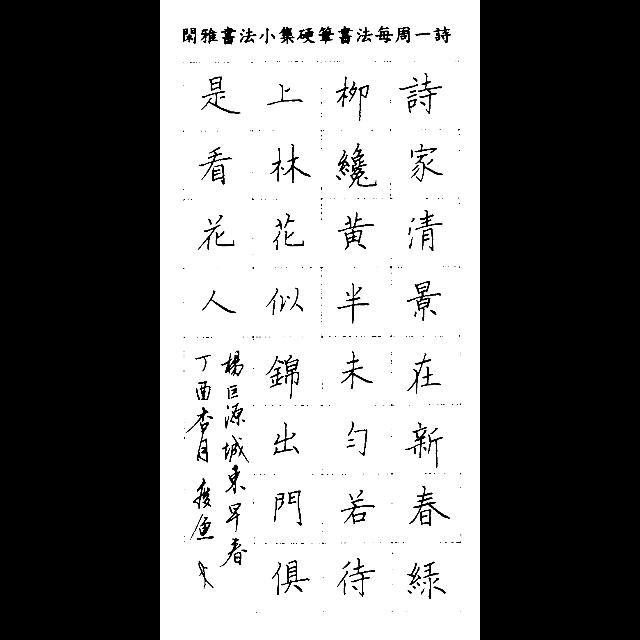 詩一周每法書筆硬集小法書雅閑
詩家清景在新春綠
柳纔黄半未勻若待
上林花似錦出門俱
是看花人
楊巨源城東早春
丁酉杏月 瘦魚